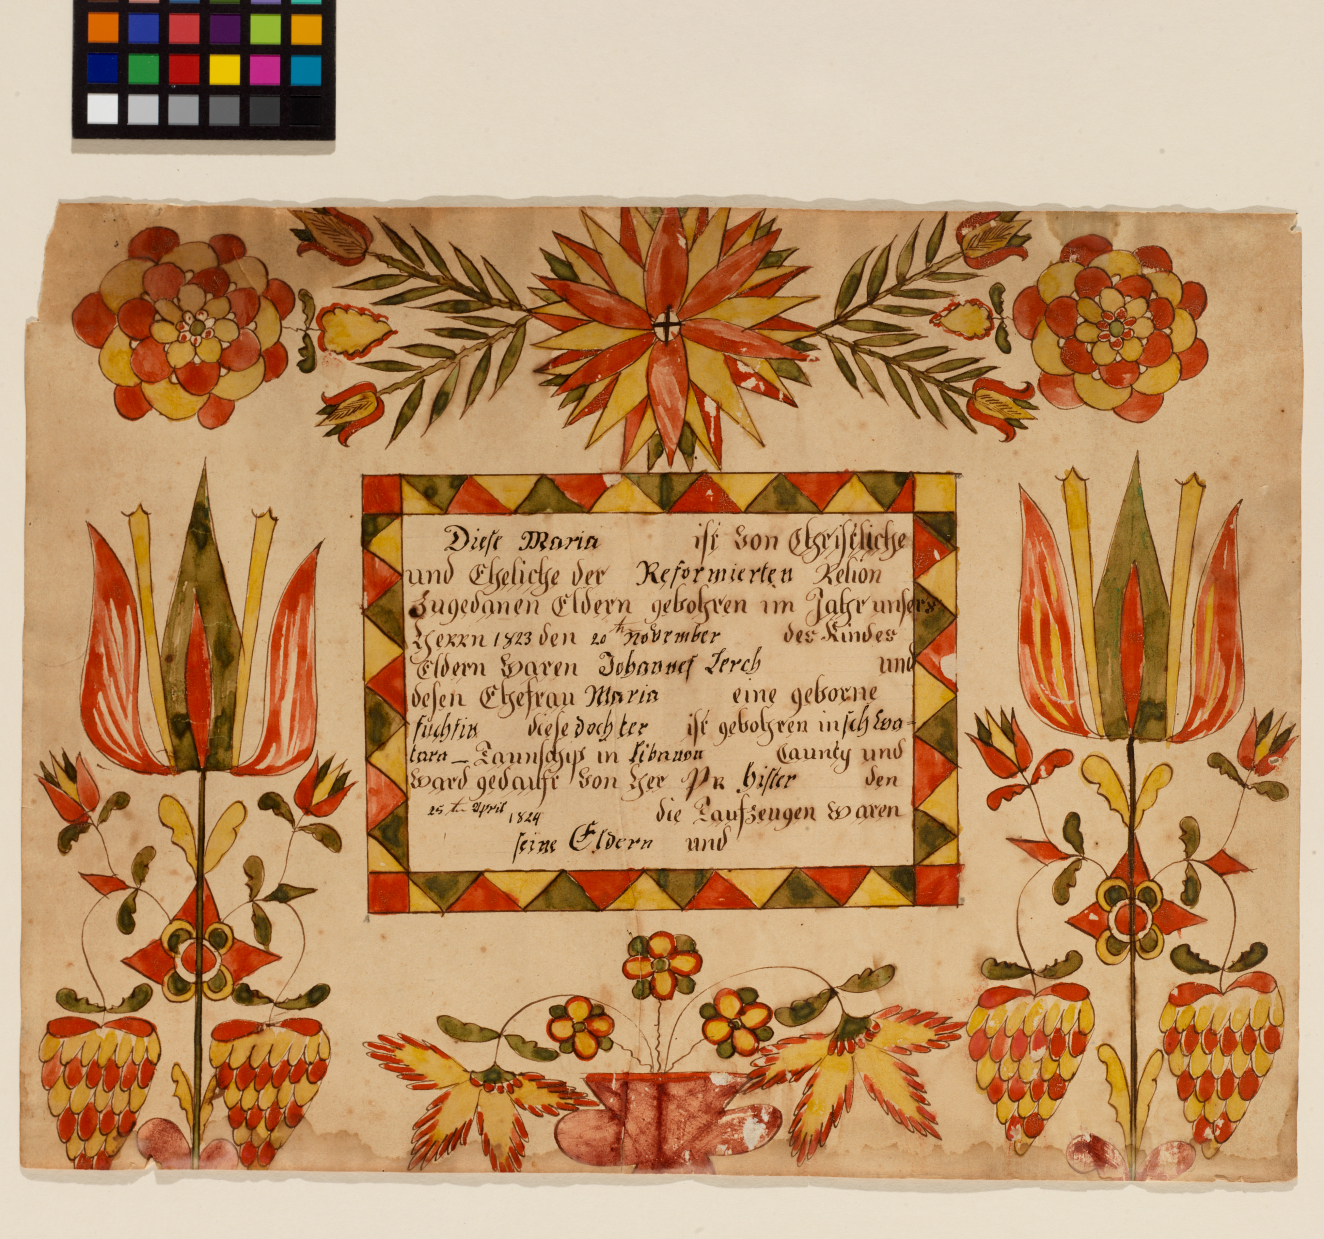 Diese Maria ist von Christliche
und Eheliche der Reformierten Relion
Zugedanen Eldern gebohren im Jahr unsers
Herrn 1823 den 20th November des Kindes
Eldern Waren Johannes Lerch und
desen Ehefrau Maria eine geborne
füchtin diese dochter ist gebohren in Schwa=
tara_ Taunschip in Libanon Caunty und
Ward gedauft von Her Pr Hister den
25th April 1824 die Taufzeugen Waren
seine Eldern und